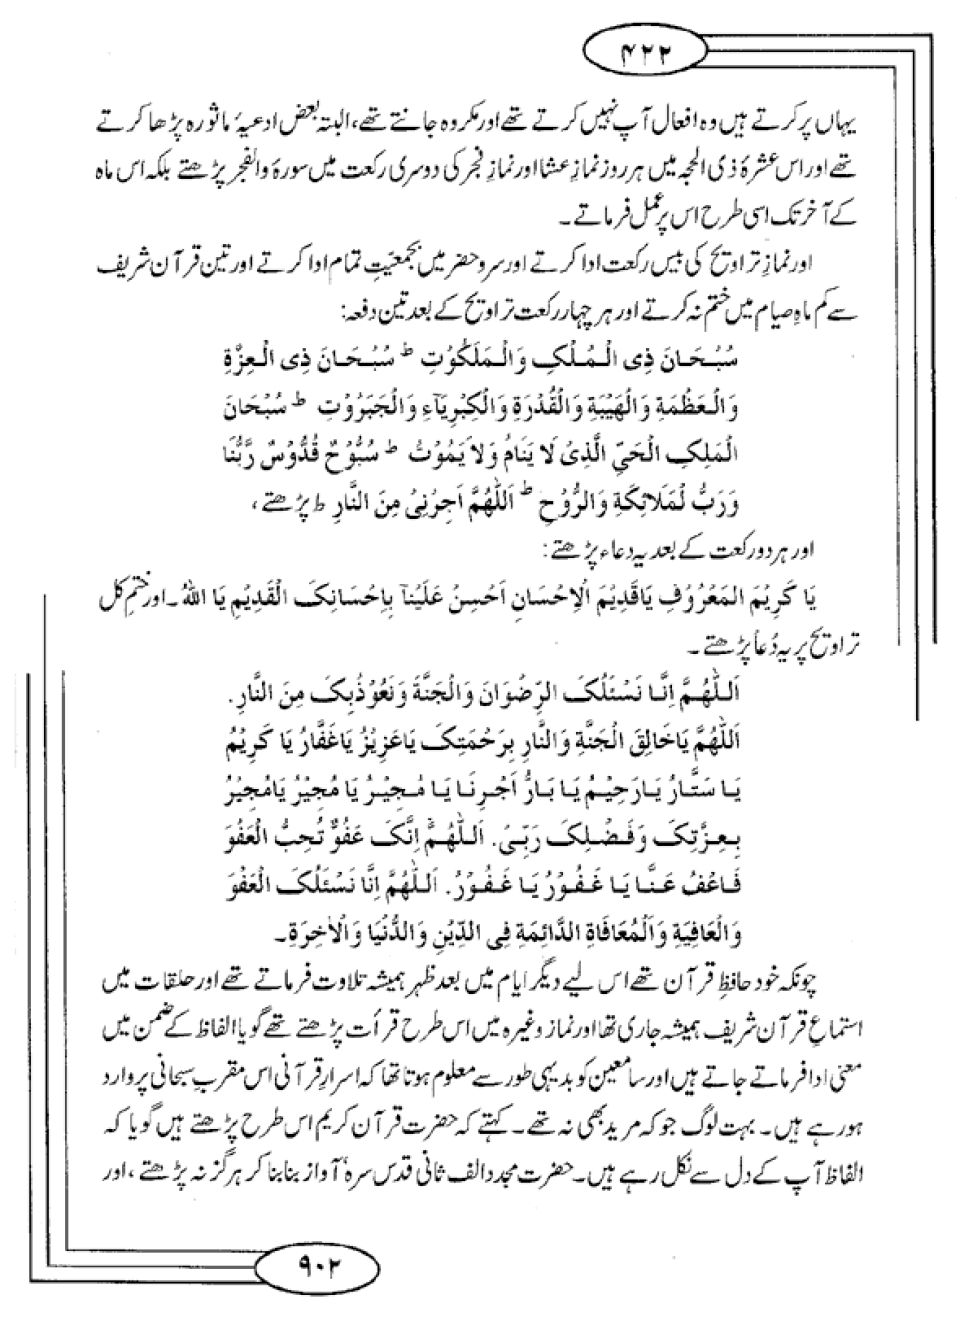 ۴۲۲
یہاں پر کرتے ہیں وہ افعال آپ نہیں کرتے تھے اور مکروہ جانتے تھے، البتہ بعض ادعیۂ ماثورہ پڑھا کرتے
تھے اور اس عشرۂ ذی الحجہ میں ہر روز نمازِ عشا اور نمازِ فجر کی دوسری رکعت میں سورۂ والفجر پڑھتے بلکہ اس ماہ
کے آخر تک اسی طرح اس پر عمل فرماتے۔
اور نمازِ تراویح کی بیس رکعت ادا کرتے اور سر و حضر میں بجمعیتِ تمام ادا کرتے اور تین قرآن شریف
سے کم ماہِ صیام میں ختم نہ کرتے اور ہر چہار رکعت تراویح کے بعد تین دفعہ:
سُبْحَانَ ذِی الْمُلْکِ وَالْمَلَکُوْتِ ط سُبْحَانَ ذِی الْعِزَّةِ
وَالْعَظْمَةِ وَالْهَیْبَةِ وَالْقُدْرَةِ وَالْکِبْرِیَآءِ وَالْجَبَرُوْتِ ط سُبْحَانَ
الْمَلِکِ الْحَیِّ الَّذِیْ لَا یَنَامُ وَلَا یَمُوْتُ ط سُبُّوْحٌ قُدُّوْسٌ رَّبُّنَا
وَرَبُّ لْمَلَائِکَةِ وَالرُّوْحِ ط اَللّٰهُمَّ اَجِرْنِیْ مِنَ النَّارِ ط پڑھتے،
اور ہر دو رکعت کے بعد یہ دعاء پڑھتے:
یَا کَرِیْمَ الْمَعْرُوْفِ یَاقَدِیْمَ الْاِحْسَانِ اَحْسِنْ عَلَیْنَآ بِاِحْسَانِکَ الْقَدِیْمِ یَا اللّٰهُ۔ اور ختمِ کل
تراویح پر یہ دُعا پڑھتے۔
اَللّٰهُمَّ اِنَّا نَسْئَلُکَ الرِّضْوَانَ وَالْجَنَّةَ وَنَعُوْذُبِکَ مِنَ النَّارِ.
اَللّٰهُمَّ یَاخَالِقَ الْجَنَّةِ وَالنَّارِ بِرَحْمَتِکَ یَاعَزِیْزُ یَاغَفَّارُ یَا کَرِیْمُ
یَا سَتَّارُ یَارَحِیْمُ یَا بَارُّ اَجِرْنَا یَا مُجِیْرُ یَا مُجِیْرُ یَامُجِیْرُ
بِعِزَّتِکَ وَفَضْلِکَ رَبِّیْ. اَللّٰهُمَّ اِنَّکَ عَفُوٌّ تُحِبُّ الْعَفْوَ
فَاعْفُ عَنَّا یَا غَفُوْرُ یَا غَفُوْرُ. اَللّٰهُمَّ اِنَّا نَسْئَلُکَ الْعَفْوَ
وَالْعَافِیَةَ وَالْمُعَافَاةَ الدَّائِمَةِ فِی الدِّیْنِ وَالدُّنْیَا وَالْاٰخِرَةِ۔
چونکہ خود حافظِ قرآن تھے اس لیے دیگر ایام میں بعد ظہر ہمیشہ تلاوت فرماتے تھے اور حلقات میں
استماعِ قرآن شریف ہمیشہ جاری تھا اور نماز وغیرہ میں اس طرح قرأت پڑھتے تھے گویا الفاظ کے ضمن میں
معنی ادا فرماتے جاتے ہیں اور سامعین کو بدیہی طور سے معلوم ہوتا تھا کہ اسرارِ قرآنی اس مقربِ سبحانی پر وارد
ہورہے ہیں۔ بہت لوگ جو کہ مرید بھی نہ تھے۔ کہتے کہ حضرت قرآن کریم اس طرح پڑھتے ہیں گویا کہ
الفاظ آپ کے دل سے نکل رہے ہیں۔ حضرت مجدد الف ثانی قدس سرہٗ آواز بنا بنا کر ہرگز نہ پڑھتے، اور
۹۰۲